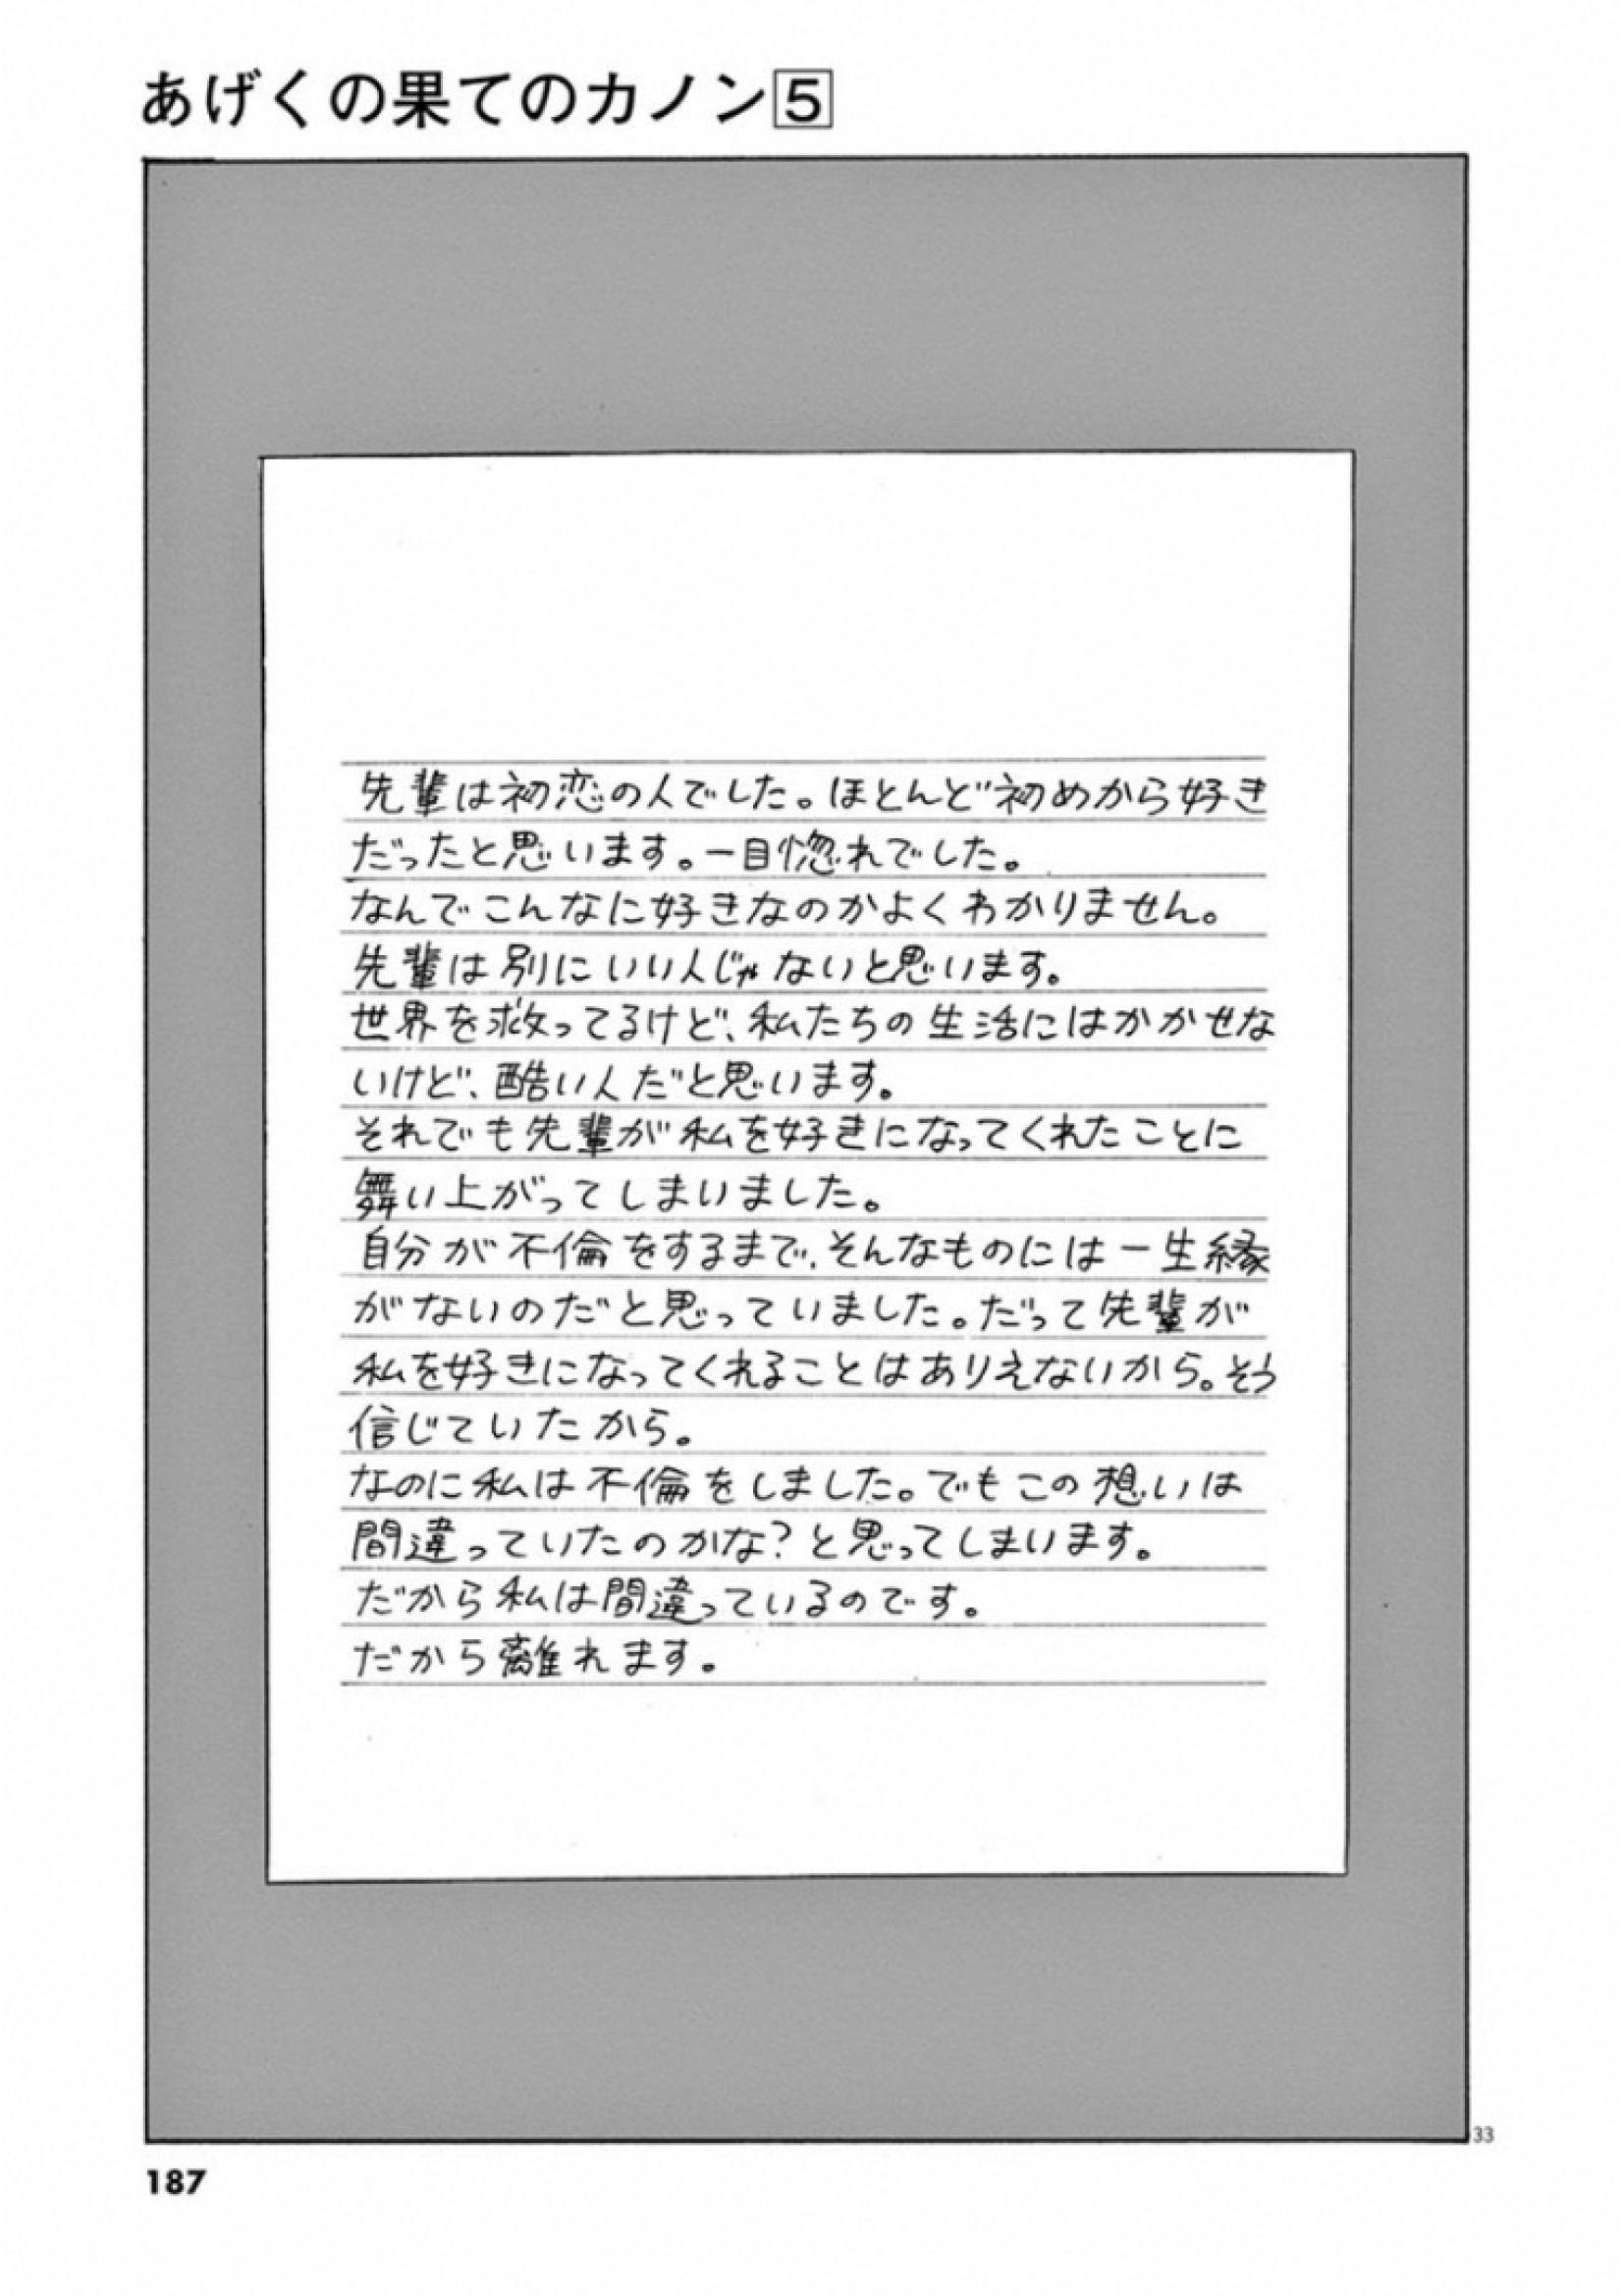 あげくの果てのカノン5
先輩は初恋の人でした。ほとんど初めから好き
だったと思います。一目惚れでした。
なんでこんなに好きなのかよくわかりません。
先輩は別にいい人じゃないと思います。
世界を救ってるけど、私たちの生活にはかかせな
いけど、酷い人だと思います。
それでも先輩が私を好きになってくれたことに
舞い上がってしまいました。
自分が不倫をするまで、そんなものには一生縁
がないのだと思っていました。だって先輩が
私を好きになってくれることはありえないから。そう
信じていたから。
なのに私は不倫をしました。でもこの想いは
間違っていたのかな？と思ってしまいます。
だから私は間違っているのです。
だから離れます。
33
187